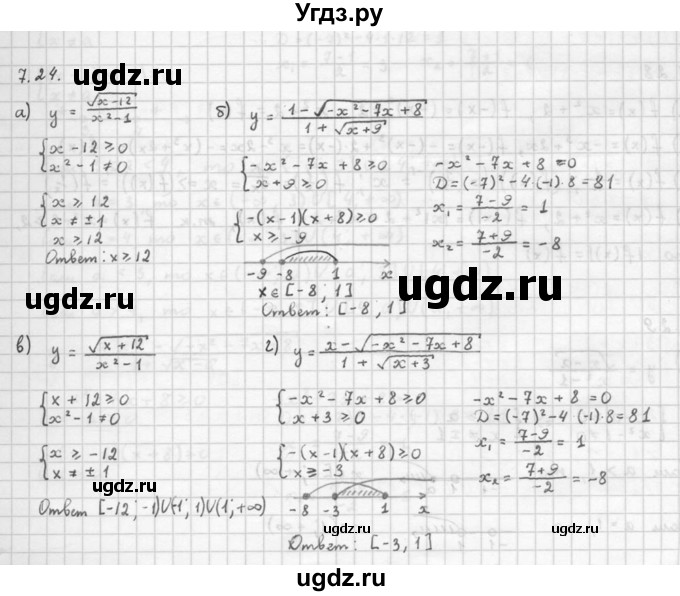 Угдз.ру
7.24.
а) y = √(x-12) / (x² - 1)
{ x - 12 ≥ 0
x² - 1 ≠ 0
{ x ≥ 12
x ≠ ± 1
x ≥ 12
Ответ: x ≥ 12
б) y = (1 - √(-x² - 7x + 8)) / (1 + √(x + 9))
{ -x² - 7x + 8 ≥ 0
x + 9 ≥ 0
{ -(x - 1)(x + 8) ≥ 0
x ≥ -9
-9 -8 1 x
x ∈ [-8; 1]
Ответ: [-8; 1]
-x² - 7x + 8 = 0
D = (-7)² - 4·(-1)·8 = 81
x₁ = (7 - 9) / -2 = 1
x₂ = (7 + 9) / -2 = -8
в) y = √(x + 12) / (x² - 1)
{ x + 12 ≥ 0
x² - 1 ≠ 0
{ x ≥ -12
x ≠ ± 1
Ответ [-12; -1)U(-1; 1)U(1; +∞)
г) y = (x - √(-x² - 7x + 8)) / (1 + √(x + 3))
{ -x² - 7x + 8 ≥ 0
x + 3 ≥ 0
{ -(x - 1)(x + 8) ≥ 0
x ≥ -3
-8 -3 1 x
Ответ: [-3, 1]
-x² - 7x + 8 = 0
D = (-7)² - 4·(-1)·8 = 81
x₁ = (7 - 9) / -2 = 1
x₂ = (7 + 9) / -2 = -8
ugdz.ru
ugdz.ru
ugdz.ru
ugdz.ru
ugdz.ru
ugdz.ru
ugdz.ru
ugdz.ru
ugdz.ru